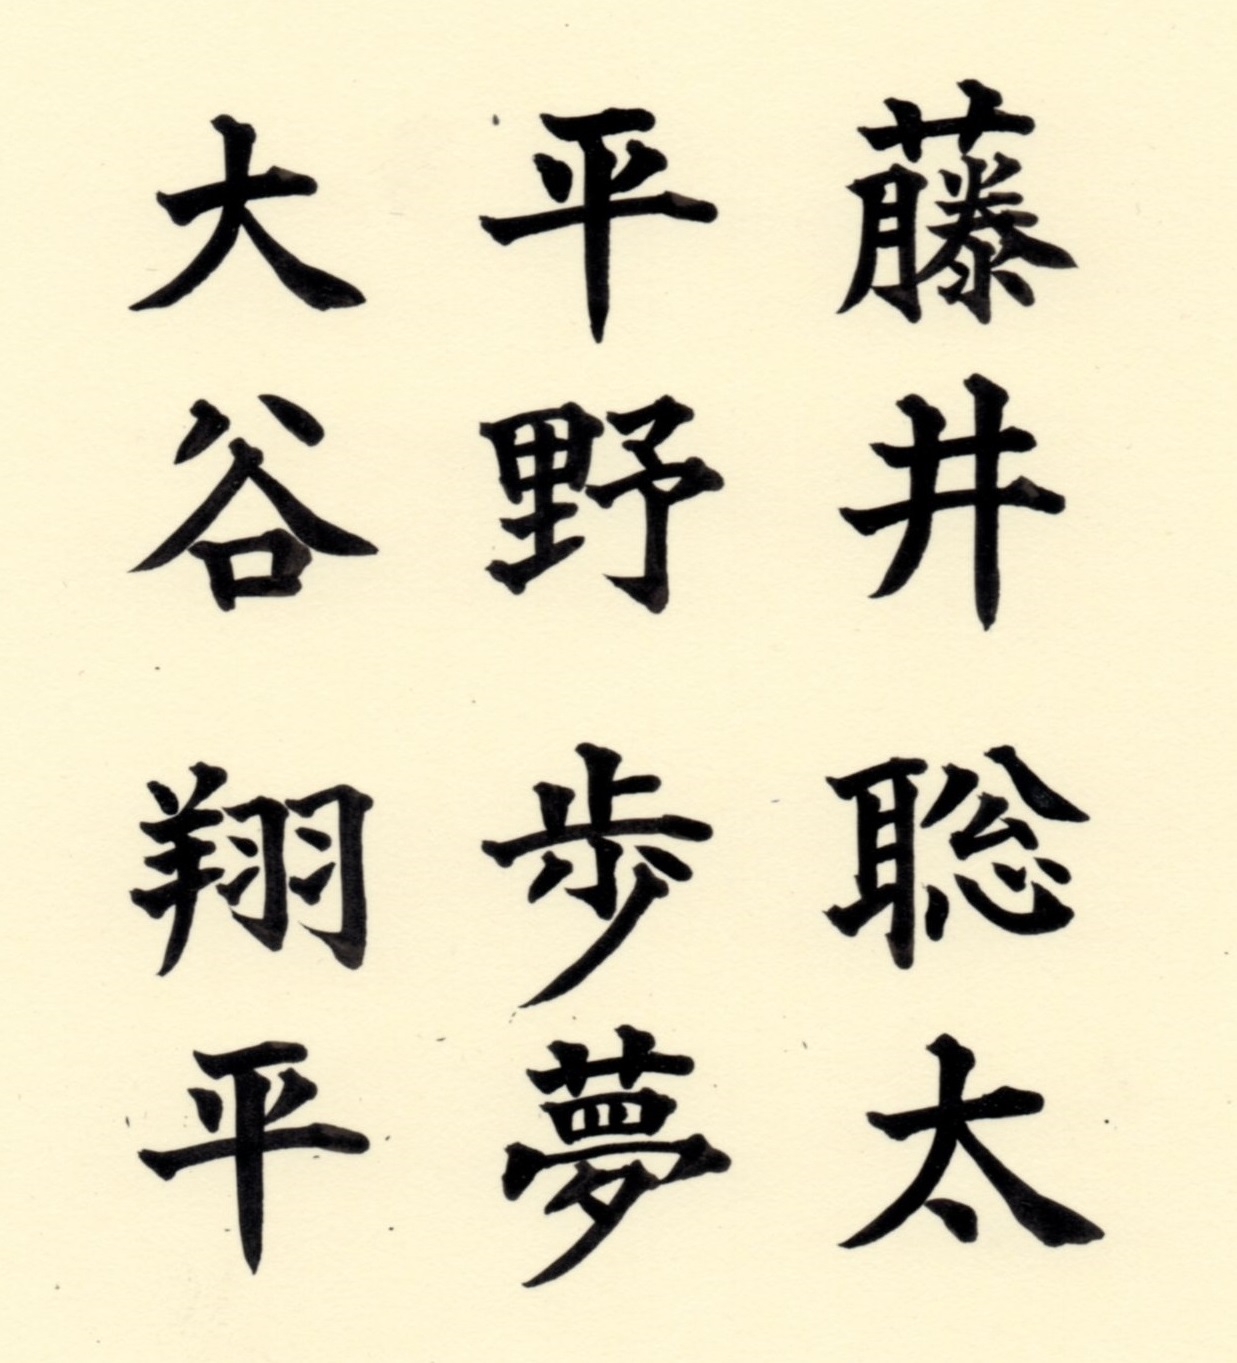 藤井聡太
平野歩夢
大谷翔平